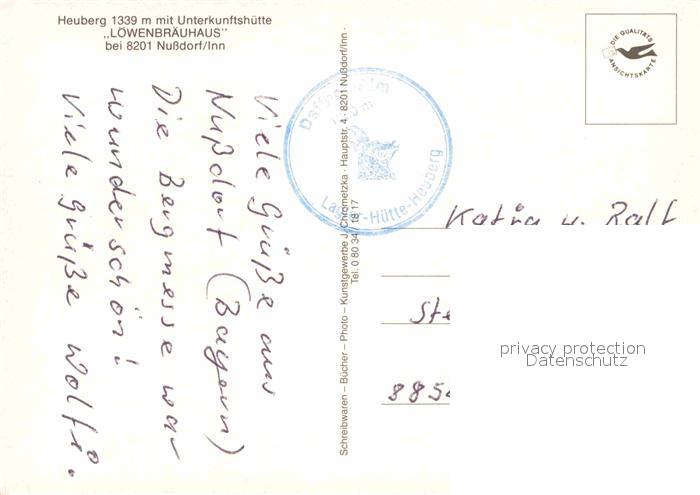 Heuberg 1339 m mit Unterkunftshütte
„LÖWENBRÄUHAUS"
bei 8201 Nußdorf/Inn
Viele Grüße aus
Nußdorf (Bayern)
Die Bergmesse war
wunderschön!
Viele Grüße Wolfi.
Schreibwaren – Bücher – Photo – Kunstgewerbe J. Chrometzka · Hauptstr. 4 · 8201 Nußdorf/Inn ·
Tel. 0 80 34 / 18 17
Lager-Hütte-Heuberg
DIE QUALITÄTS
ANSICHTSKARTE
Katja u. Ralf
Ste
885
privacy protection
Datenschutz